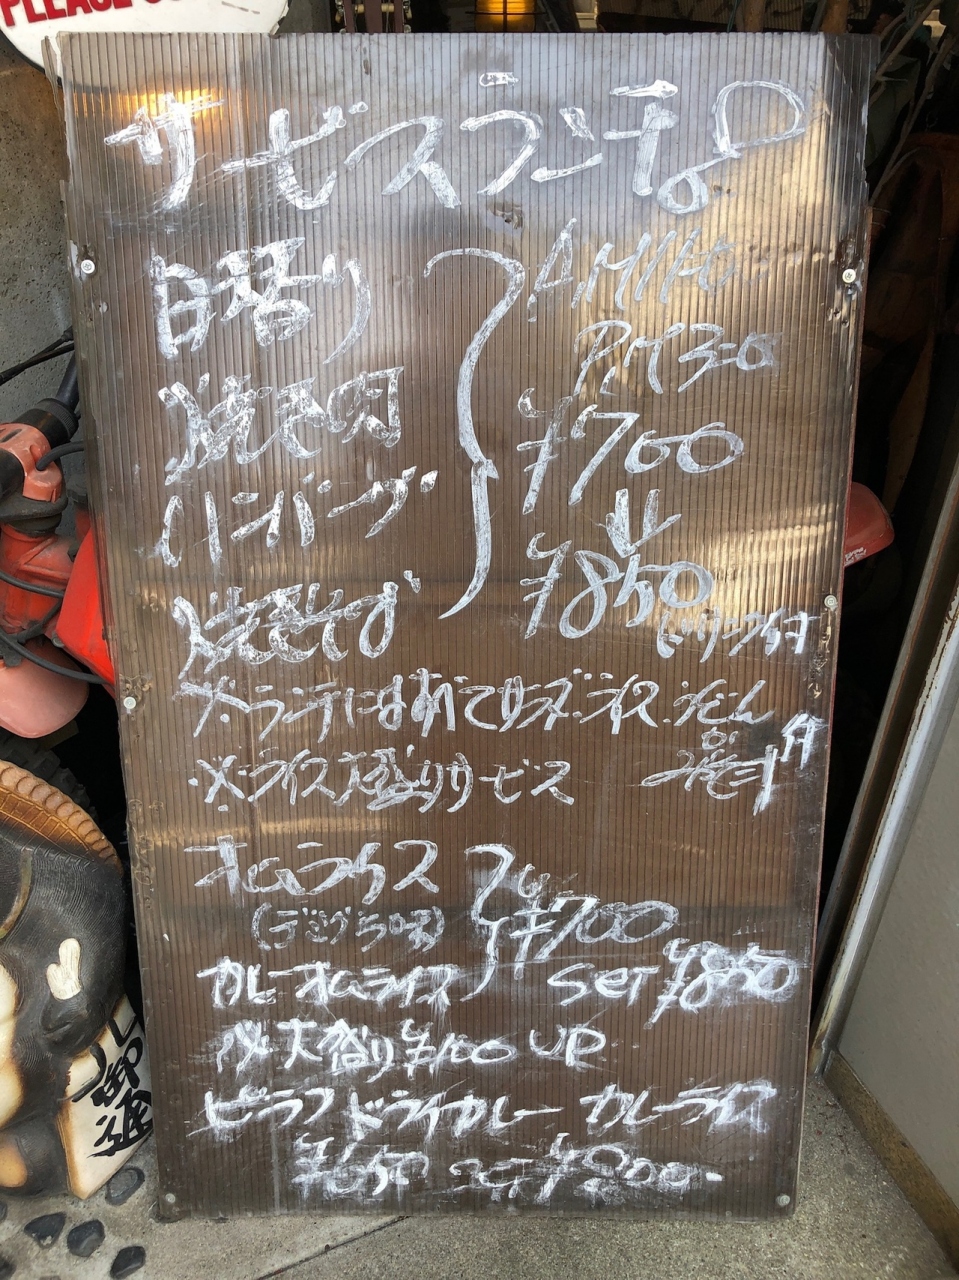 PLEASE
サービスランチ
日替り
焼き肉
ハンバーグ
焼きそば
AM11:00
PM3:00
¥700
↓
¥850
ドリンク付
※ランチにはすべてサラダ・ライス・うどん
※ライス大盛りサービス
オムライス
(デミグラ味)
¥700
カレーオムライス
SET ¥850
※大盛り¥100 UP
ピラフ ドライカレー カレーライス
¥650 ¥800-